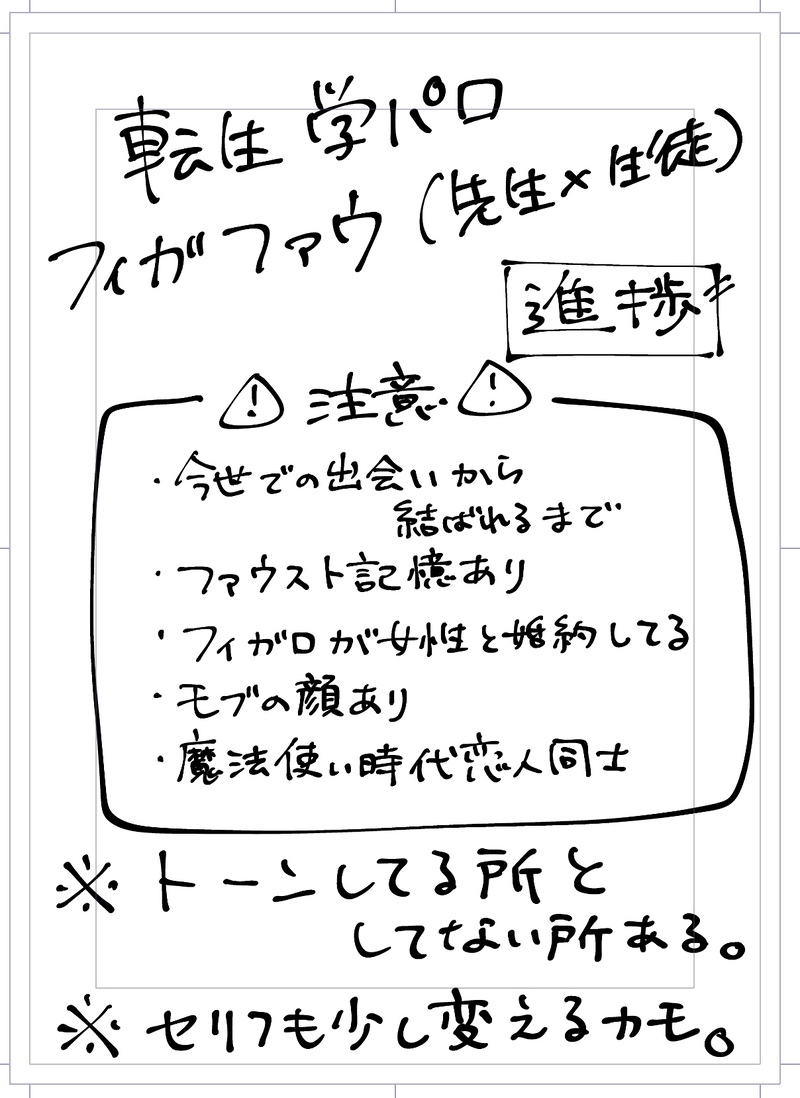 転生 学パロ
フィガファウ (先生×生徒)
進捗
⚠ 注意 ⚠
・今世での出会いから
結ばれるまで
・ファウスト記憶あり
・フィガロが女性と婚約してる
・モブの顔あり
・魔法使い時代恋人同士
※ トーンしてる所と
してない所ある。
※ セリフも少し変えるカモ。